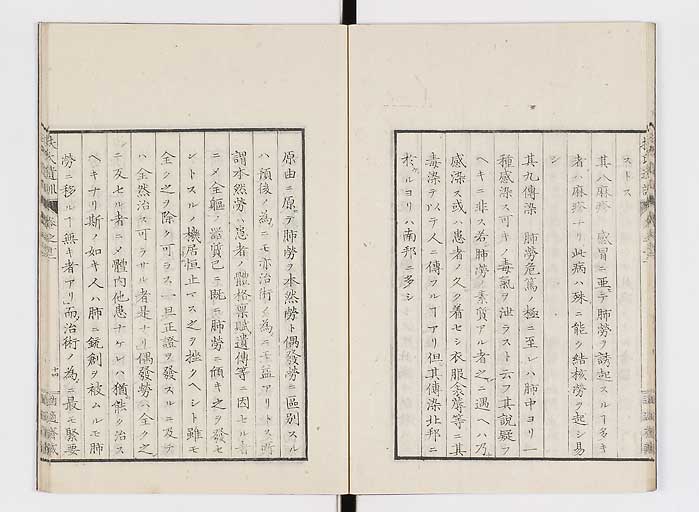 ストス
其八麻疹 感冒ニ亜テ肺勞ヲ誘起スルヿ多キ
者ハ麻疹ナリ此病ハ殊ニ能ク結核勞ヲ起シ易
シ
其九傳染 肺勞危篤ノ極ニ至レハ肺中ヨリ一
種感染ス可キノ毒氣ヲ泄ラスト云フ其說疑フ
ヘキニ非ス若肺勞ノ素質アル者之ニ遇ヘハ乃
感染ス或ハ患者ノ久ク着セシ衣服衾蓐等ニ其
毒染テ以テ人ニ傳フルヿアリ但其傳染北邦ニ
於ルヨリハ南邦ニ多シ
原由ニ原テ肺勞ヲ本然勞ト偶發勞ニ區別スル
ハ預後ノ為ニモ亦治術ノ為ニモ益アリトス所
謂本然勞ハ患者ノ體格稟賦遺傳等ニ因セル者
ニメ全軀ノ器質已テ既ニ肺勞ニ傾キ之ヲ發セ
シトスルノ機居恒止マス之ヲ挫クヘシト雖モ
全ク之ヲ除ク可ラス一旦正證ヲ發スルニ及テ
ハ全然治ス可ラサル者是ナリ偶發勞ハ全ク之
ニ反セル者ニメ體內他患ナケレハ猶能ク治ス
ヘキナリ斯ノ如キ人ハ肺ニ銃創ヲ被ムルモ肺
勞ニ移ルヿ無キ者アリ而治術ノ為ニ最モ緊要
扶氏遺訓 卷之
十四
適適齋藏